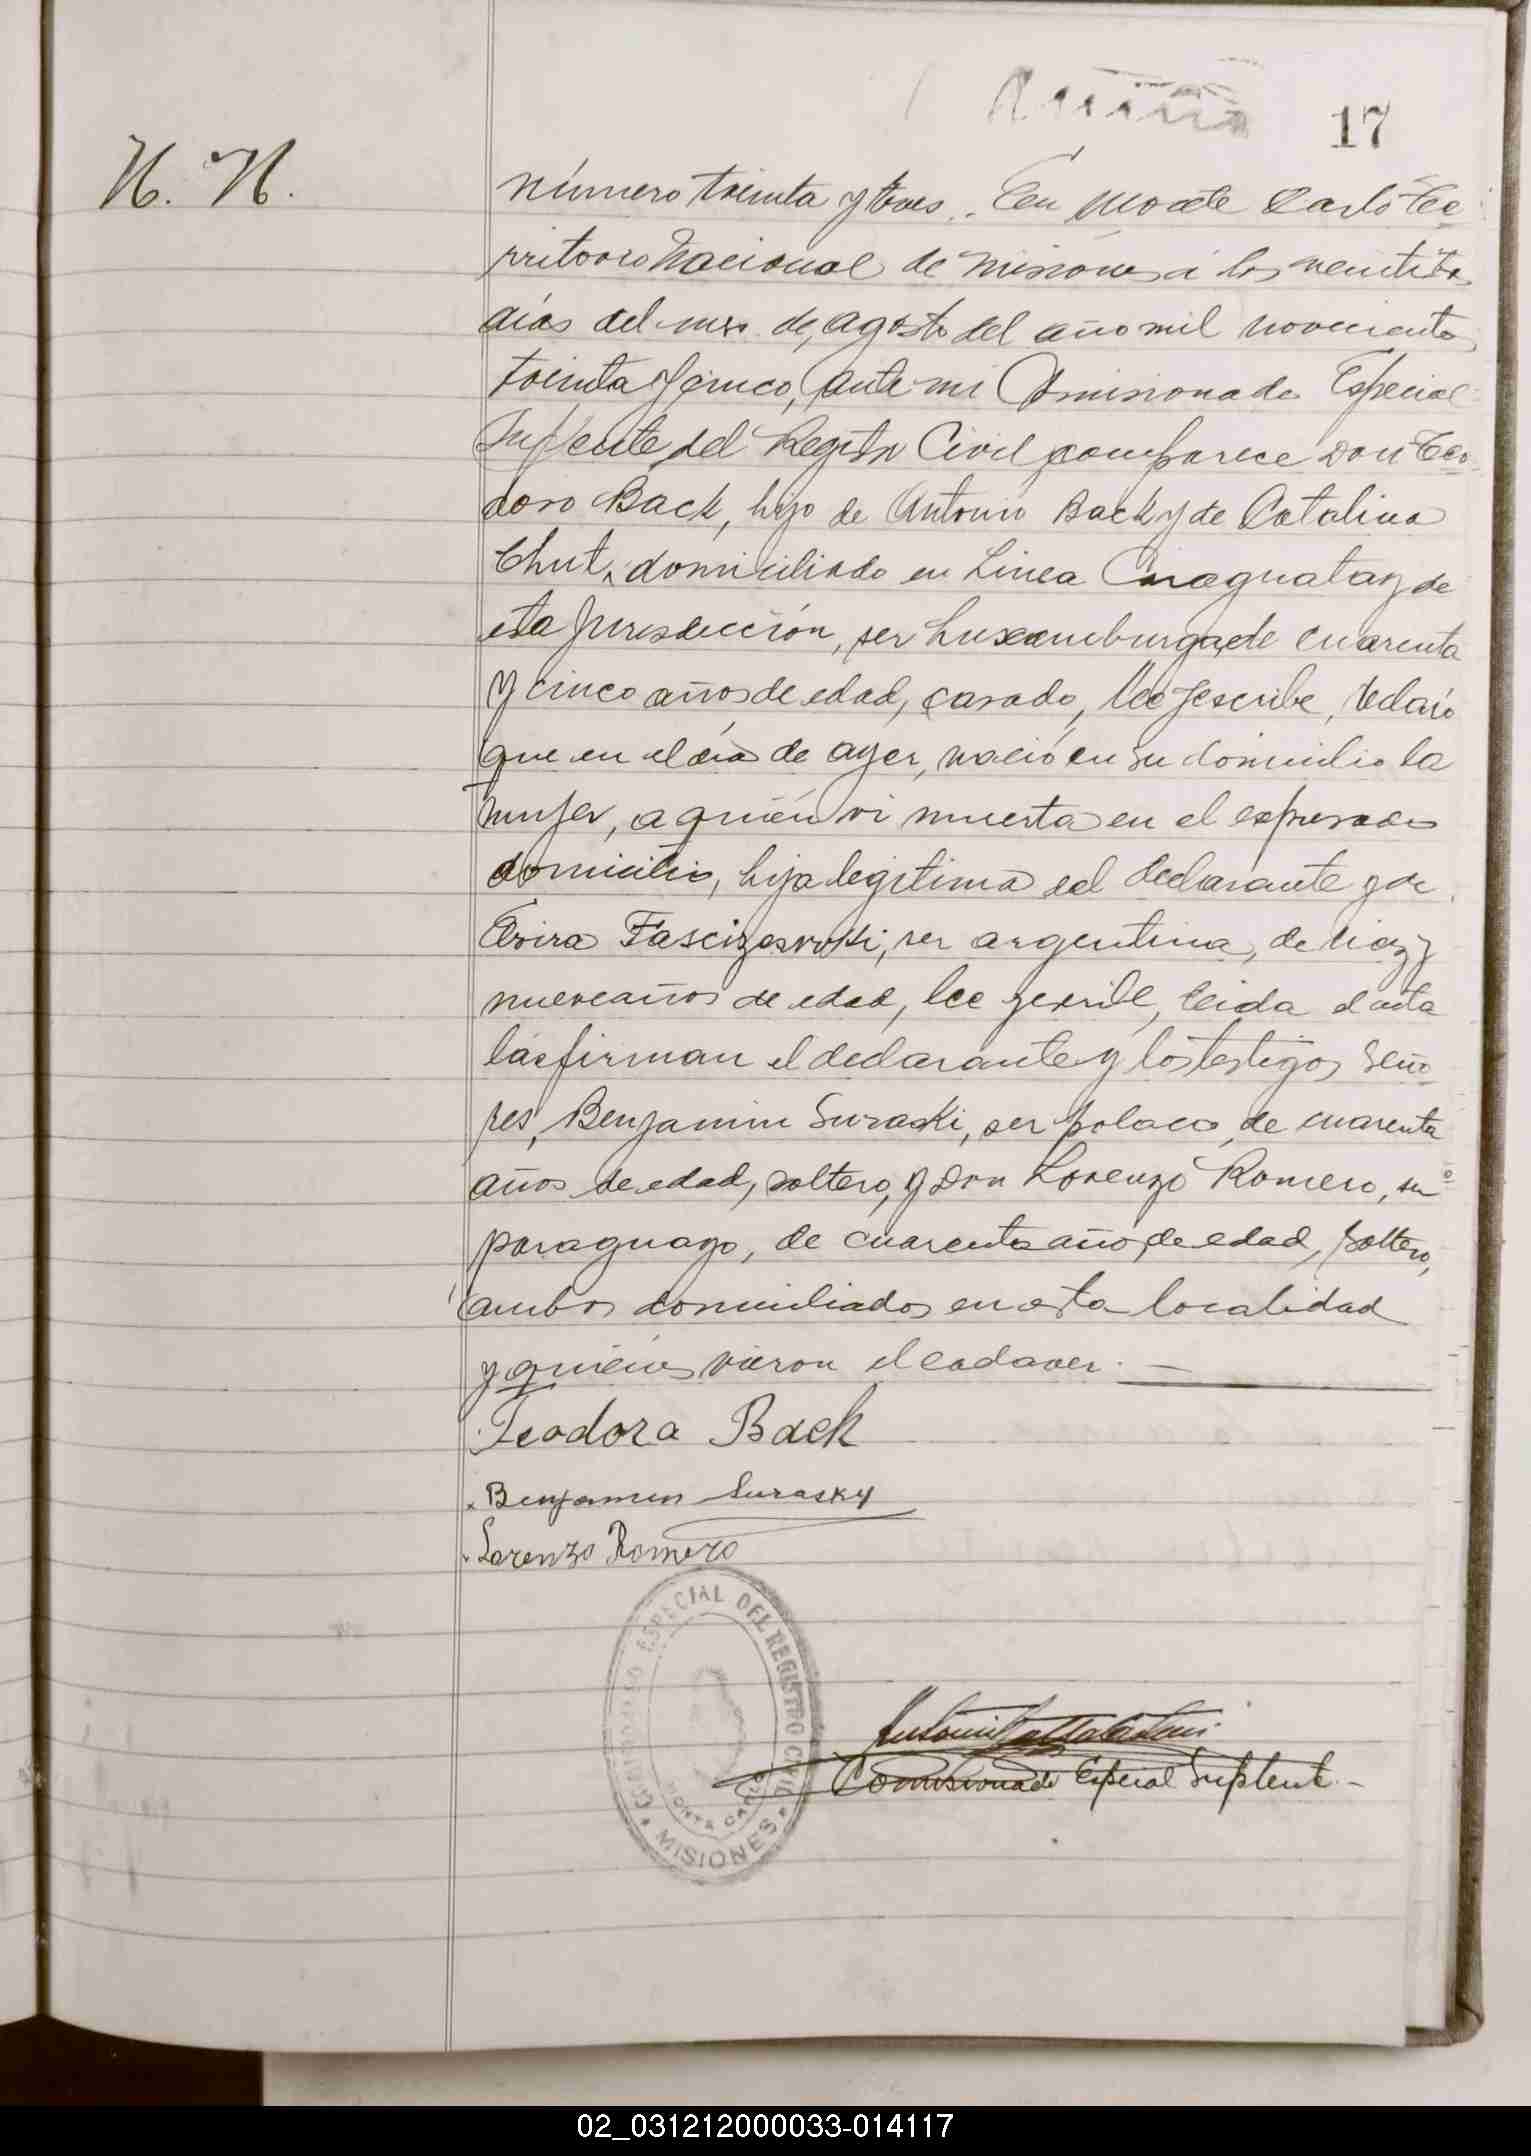 17
N. N.
Número treinta y tres. En Monte Carlo Te-
rritorio Nacional de Misiones á los veintitrés
días del mes de, agosto del año mil novecientos
treinta y cinco, ante mi Comisionado Especial
Suplente del Registro Civil comparece Don Teo-
doro Back, hijo de Antonio Back y de Catalina
Chut, domiciliado en Linea Caraguatay de
esta jurisdicción, ser Luxemburgo, de cuarenta
y cinco años de edad, casado, lee y escribe, declaró
que en el día de ayer, nació en su domicilio la
mujer, a quién vi muerta en el expresado
domicilio, hija legitima del declarante y de
Fascizeswski, ser argentina, de diez y
nueve años de edad, lee y escribe, leida el acta
la firman el declarante y los testigos Seño-
res, Benjamin Suraski, ser polaco, de cuarenta
años de edad, soltero, y Don Lorenzo Romero, ser
paraguayo, de cuarenta años de edad, soltero,
ambos domiciliados en esta localidad
y quienes vieron el cadaver.
Teodoro Back
Benjamin Surasky
Lorenzo Romero
COMISIONADO ESPECIAL DEL REGISTRO CIVIL
MONTE CARLO
MISIONES
Antonio
Comisionado Especial Suplente
02_031212000033-014117